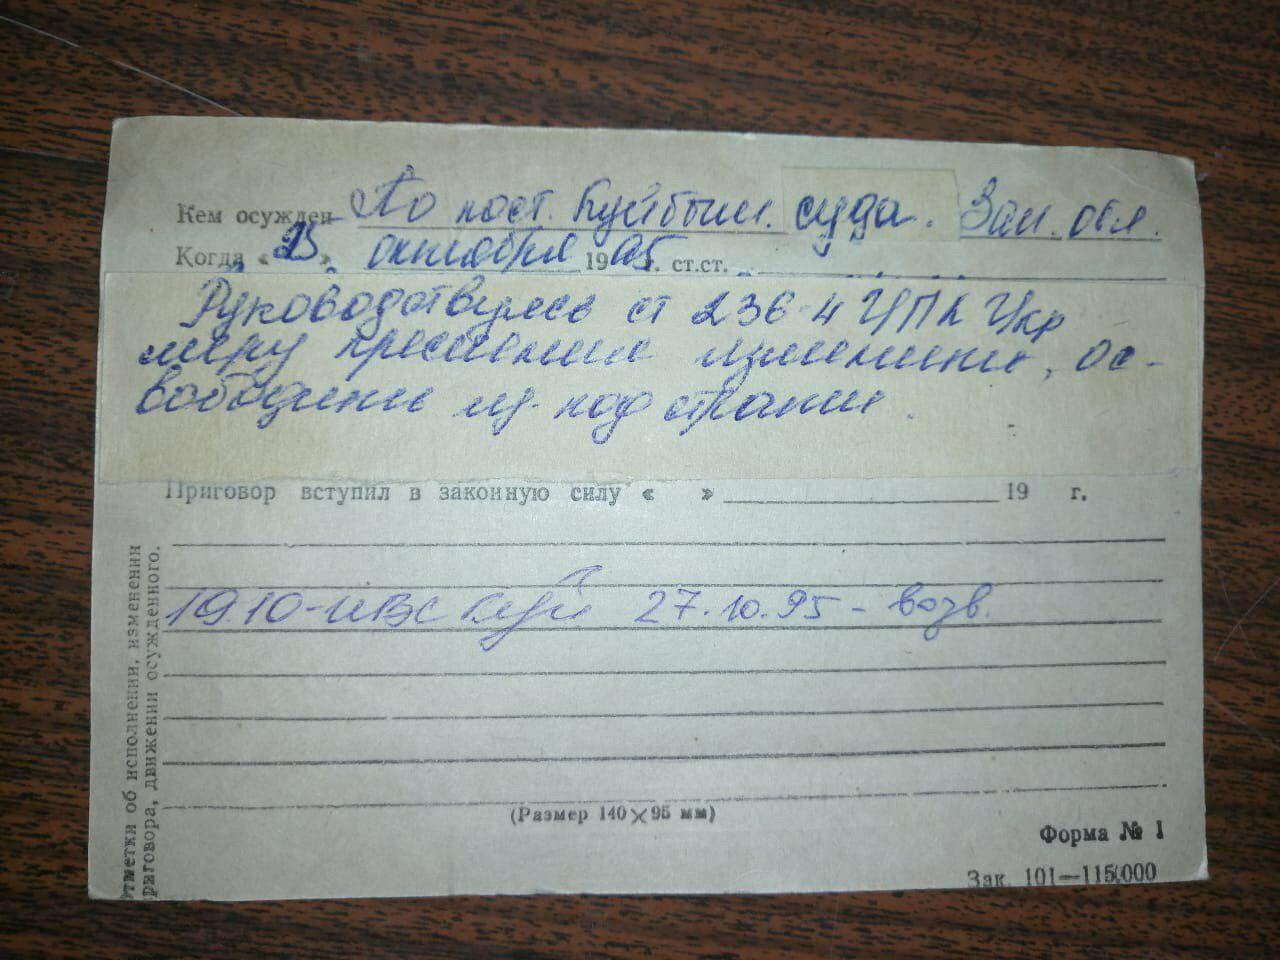 Кем осужден По пост. Куйбыш. суда. Зап. обл.
Когда «25» октября 1995 г. ст.ст.
Руководствуясь ст 236-4 УПК Укр
меру пресечения изменить, ос-
вободить из-под стражи.
Приговор вступил в законную силу « » 19 г.
19.10-ИВС Куй 27.10.95 - возв.
(Размер 140×95 мм)
Форма № 1
Зак. 101—115000
Отметки об исполнении, изменении
приговора, движении осужденного.